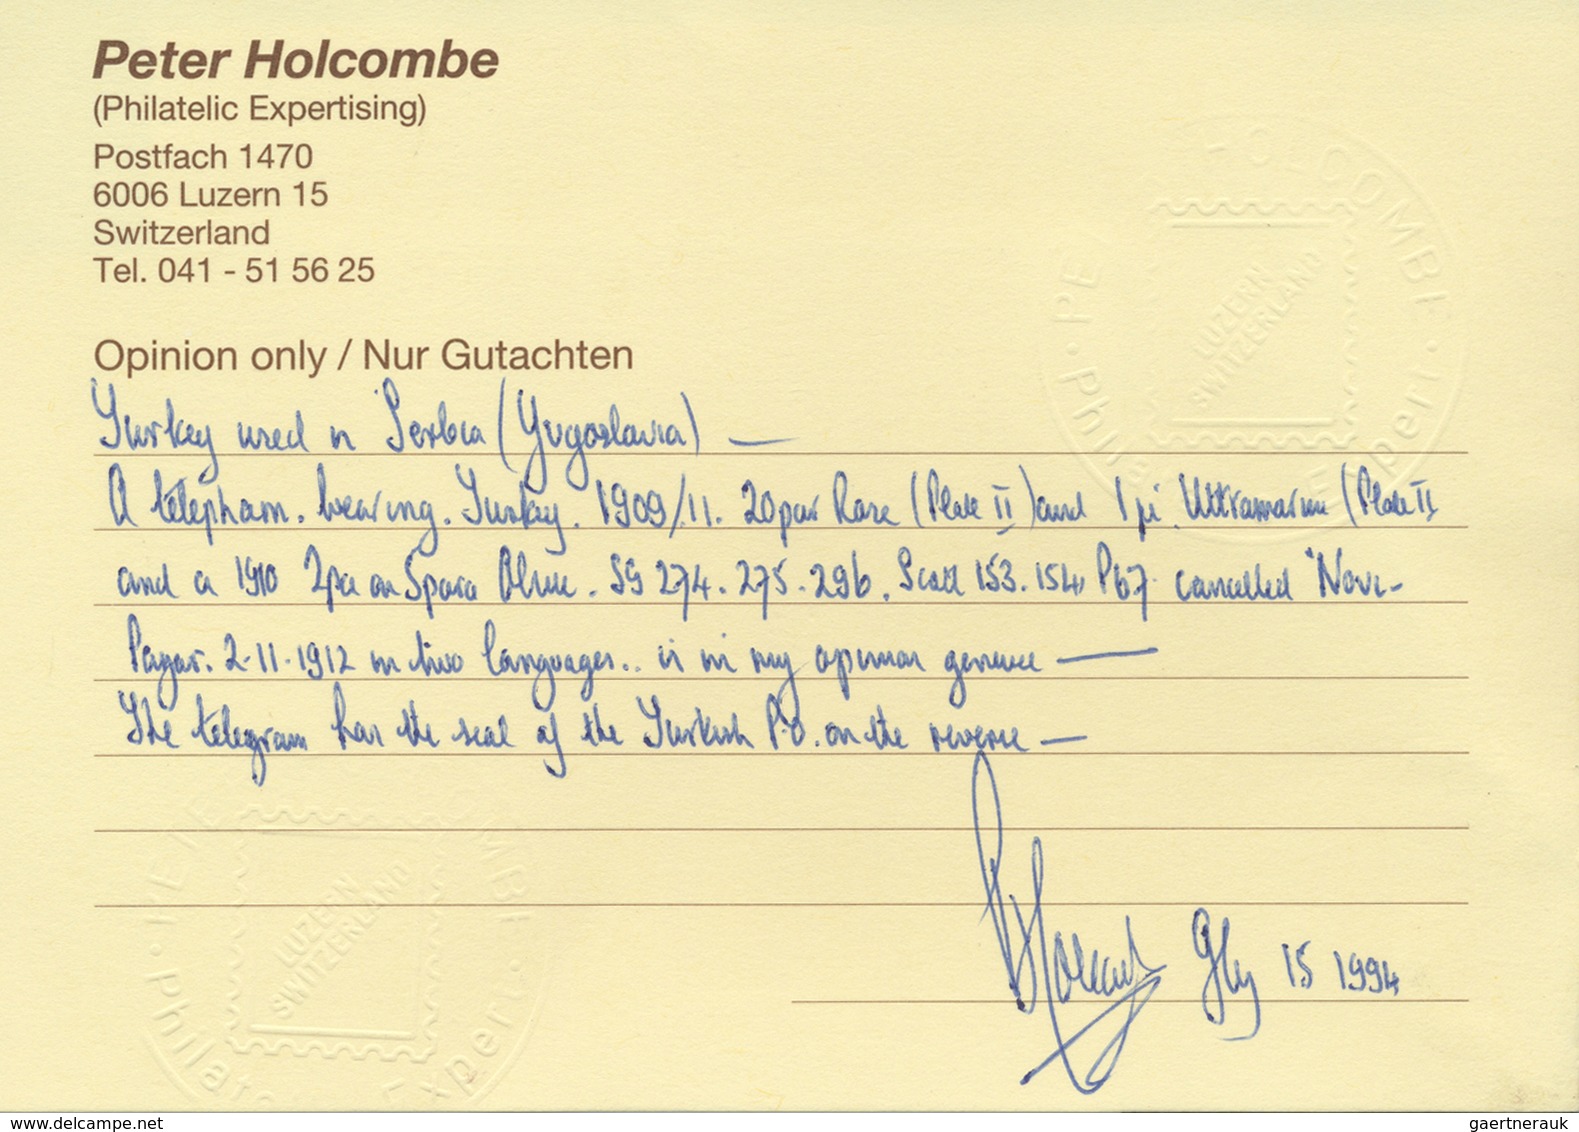 Peter Holcombe
(Philatelic Expertising)
Postfach 1470
6006 Luzern 15
Switzerland
Tel. 041 - 51 56 25
HOLCOMBE
LUZERN
SWITZERLAND
Opinion only / Nur Gutachten
Turkey used in Serbia (Yugoslavia) —
A telepham. bearing. Turkey. 1909/11. 20par Rose (Plate II) and 1pi. Ultramarine (Plate II
and a 1910 2pa on 5para Olive. SG 274. 275. 296. Scott 153. 154. P67. cancelled "Novi-
Pazar. 2-11-1912 in two languages.. is in my opinion genuine —
The telegram has the seal of the Turkish P.O. on the reverse —
LUZERN
SWITZERLAND
PHolcombe July 15 1994
www.delcampe.net
gaertnerauk